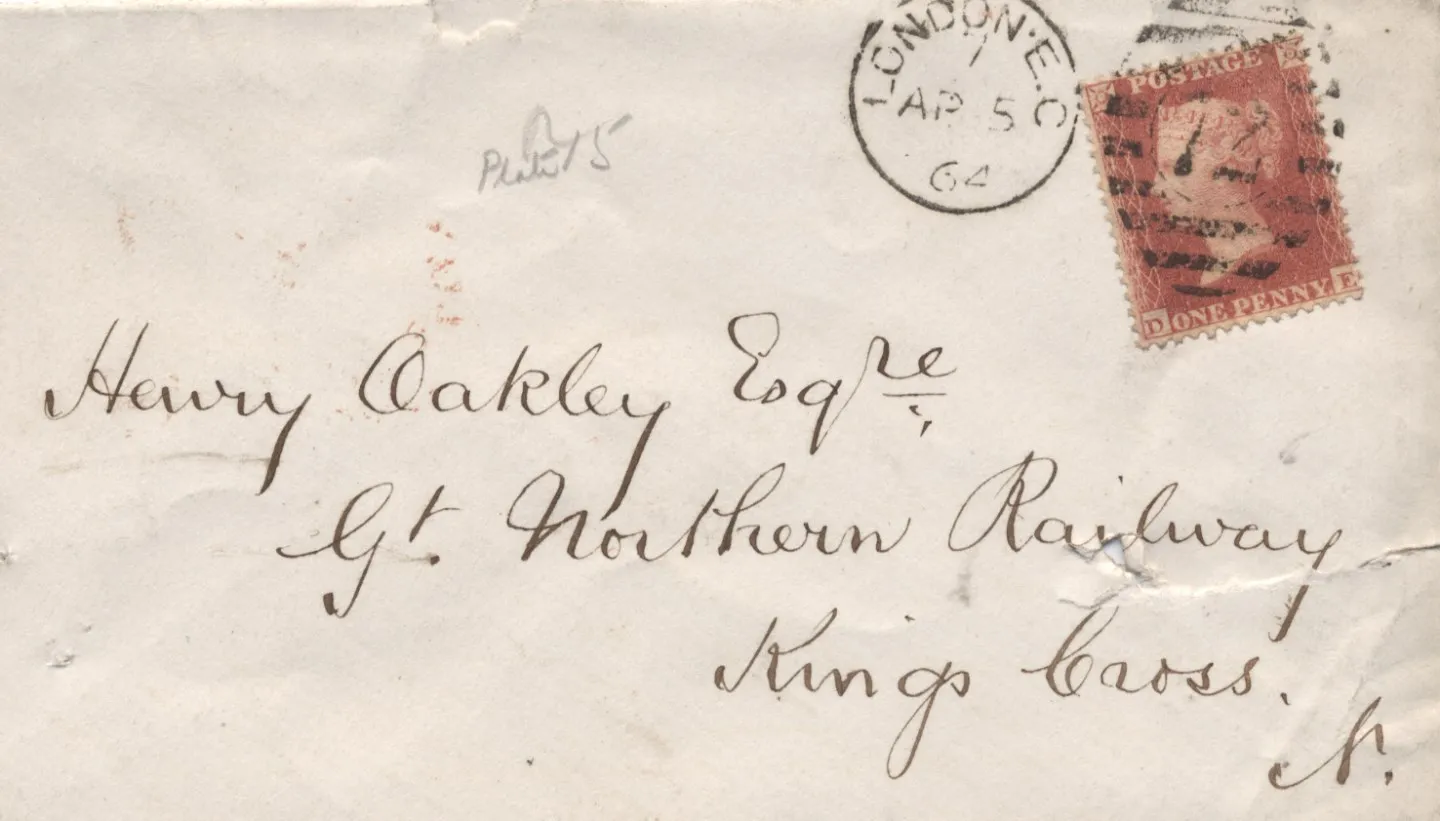 LONDON·E.C
1
AP 5
64
POSTAGE
72
D ONE PENNY E
Plate 15
Henry Oakley Esqre
Gt. Northern Railway
Kings Cross.
N.